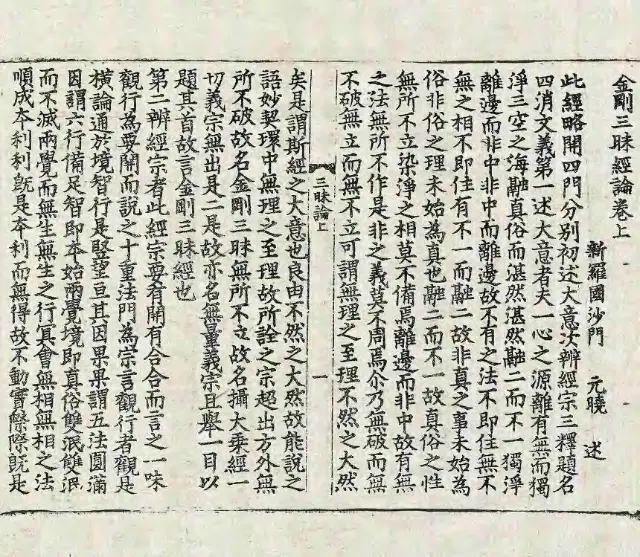 金剛三昧經論卷上
新羅國沙門 元曉 述
此經略開四門分別初述大意次辨經宗三釋題名
四消文義第一述大意者夫一心之源離有無而獨
淨三空之海融真俗而湛然湛然融二而不一獨淨
離邊而非中非中而離邊故不有之法不即住無不
無之相不即住有不一而融二故非真之事未始為
俗非俗之理未始為真也融二而不一故真俗之性
無所不立染淨之相莫不備焉離邊而非中故有無
之法無所不作是非之義莫不周焉尒乃無破而無
不破無立而無不立可謂無理之至理不然之大然
三昧論上 一
矣是謂斯經之大意也良由不然之大然故能說之
語妙契環中無理之至理故所詮之宗超出方外無
所不破故名金剛三昧無所不立故名攝大乘經一
切義宗無出是二是故亦名無量義宗且舉一目以
題其首故言金剛三昧經也
第二辨經宗者此經宗要有開有合合而言之一味
觀行為要開而說之十重法門為宗言觀行者觀是
橫論通於境智行是竪望亘其因果果謂五法圓滿
因謂六行備足智即本始兩覺境即真俗雙泯雙泯
而不滅兩覺而無生無生之行冥會無相無相之法
順成本利利旣是本利而無得故不動實際際旣是